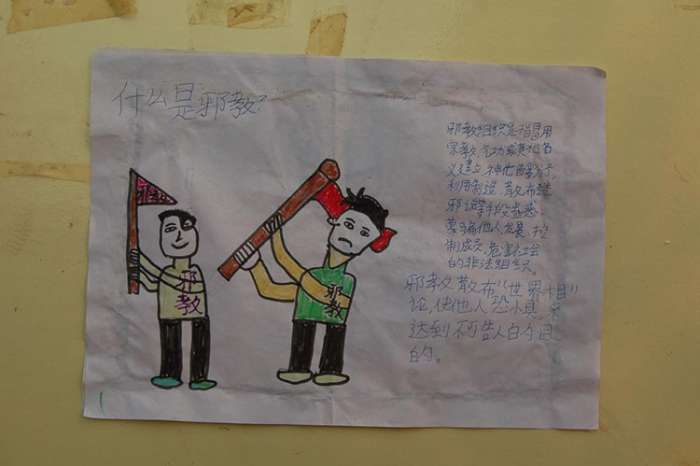 什么是邪教?
邪教组织是指冒用
宗教、气功或其他名
义建立、神他首要分子,
利用制造、散布迷
邪说等手段蛊惑
蒙骗他人,发展、控
制成员,危害社会
的非法组织。
邪教散布“世界末日”
论,使他人恐惧,来
达到不可告人的目
的。
邪教
邪教